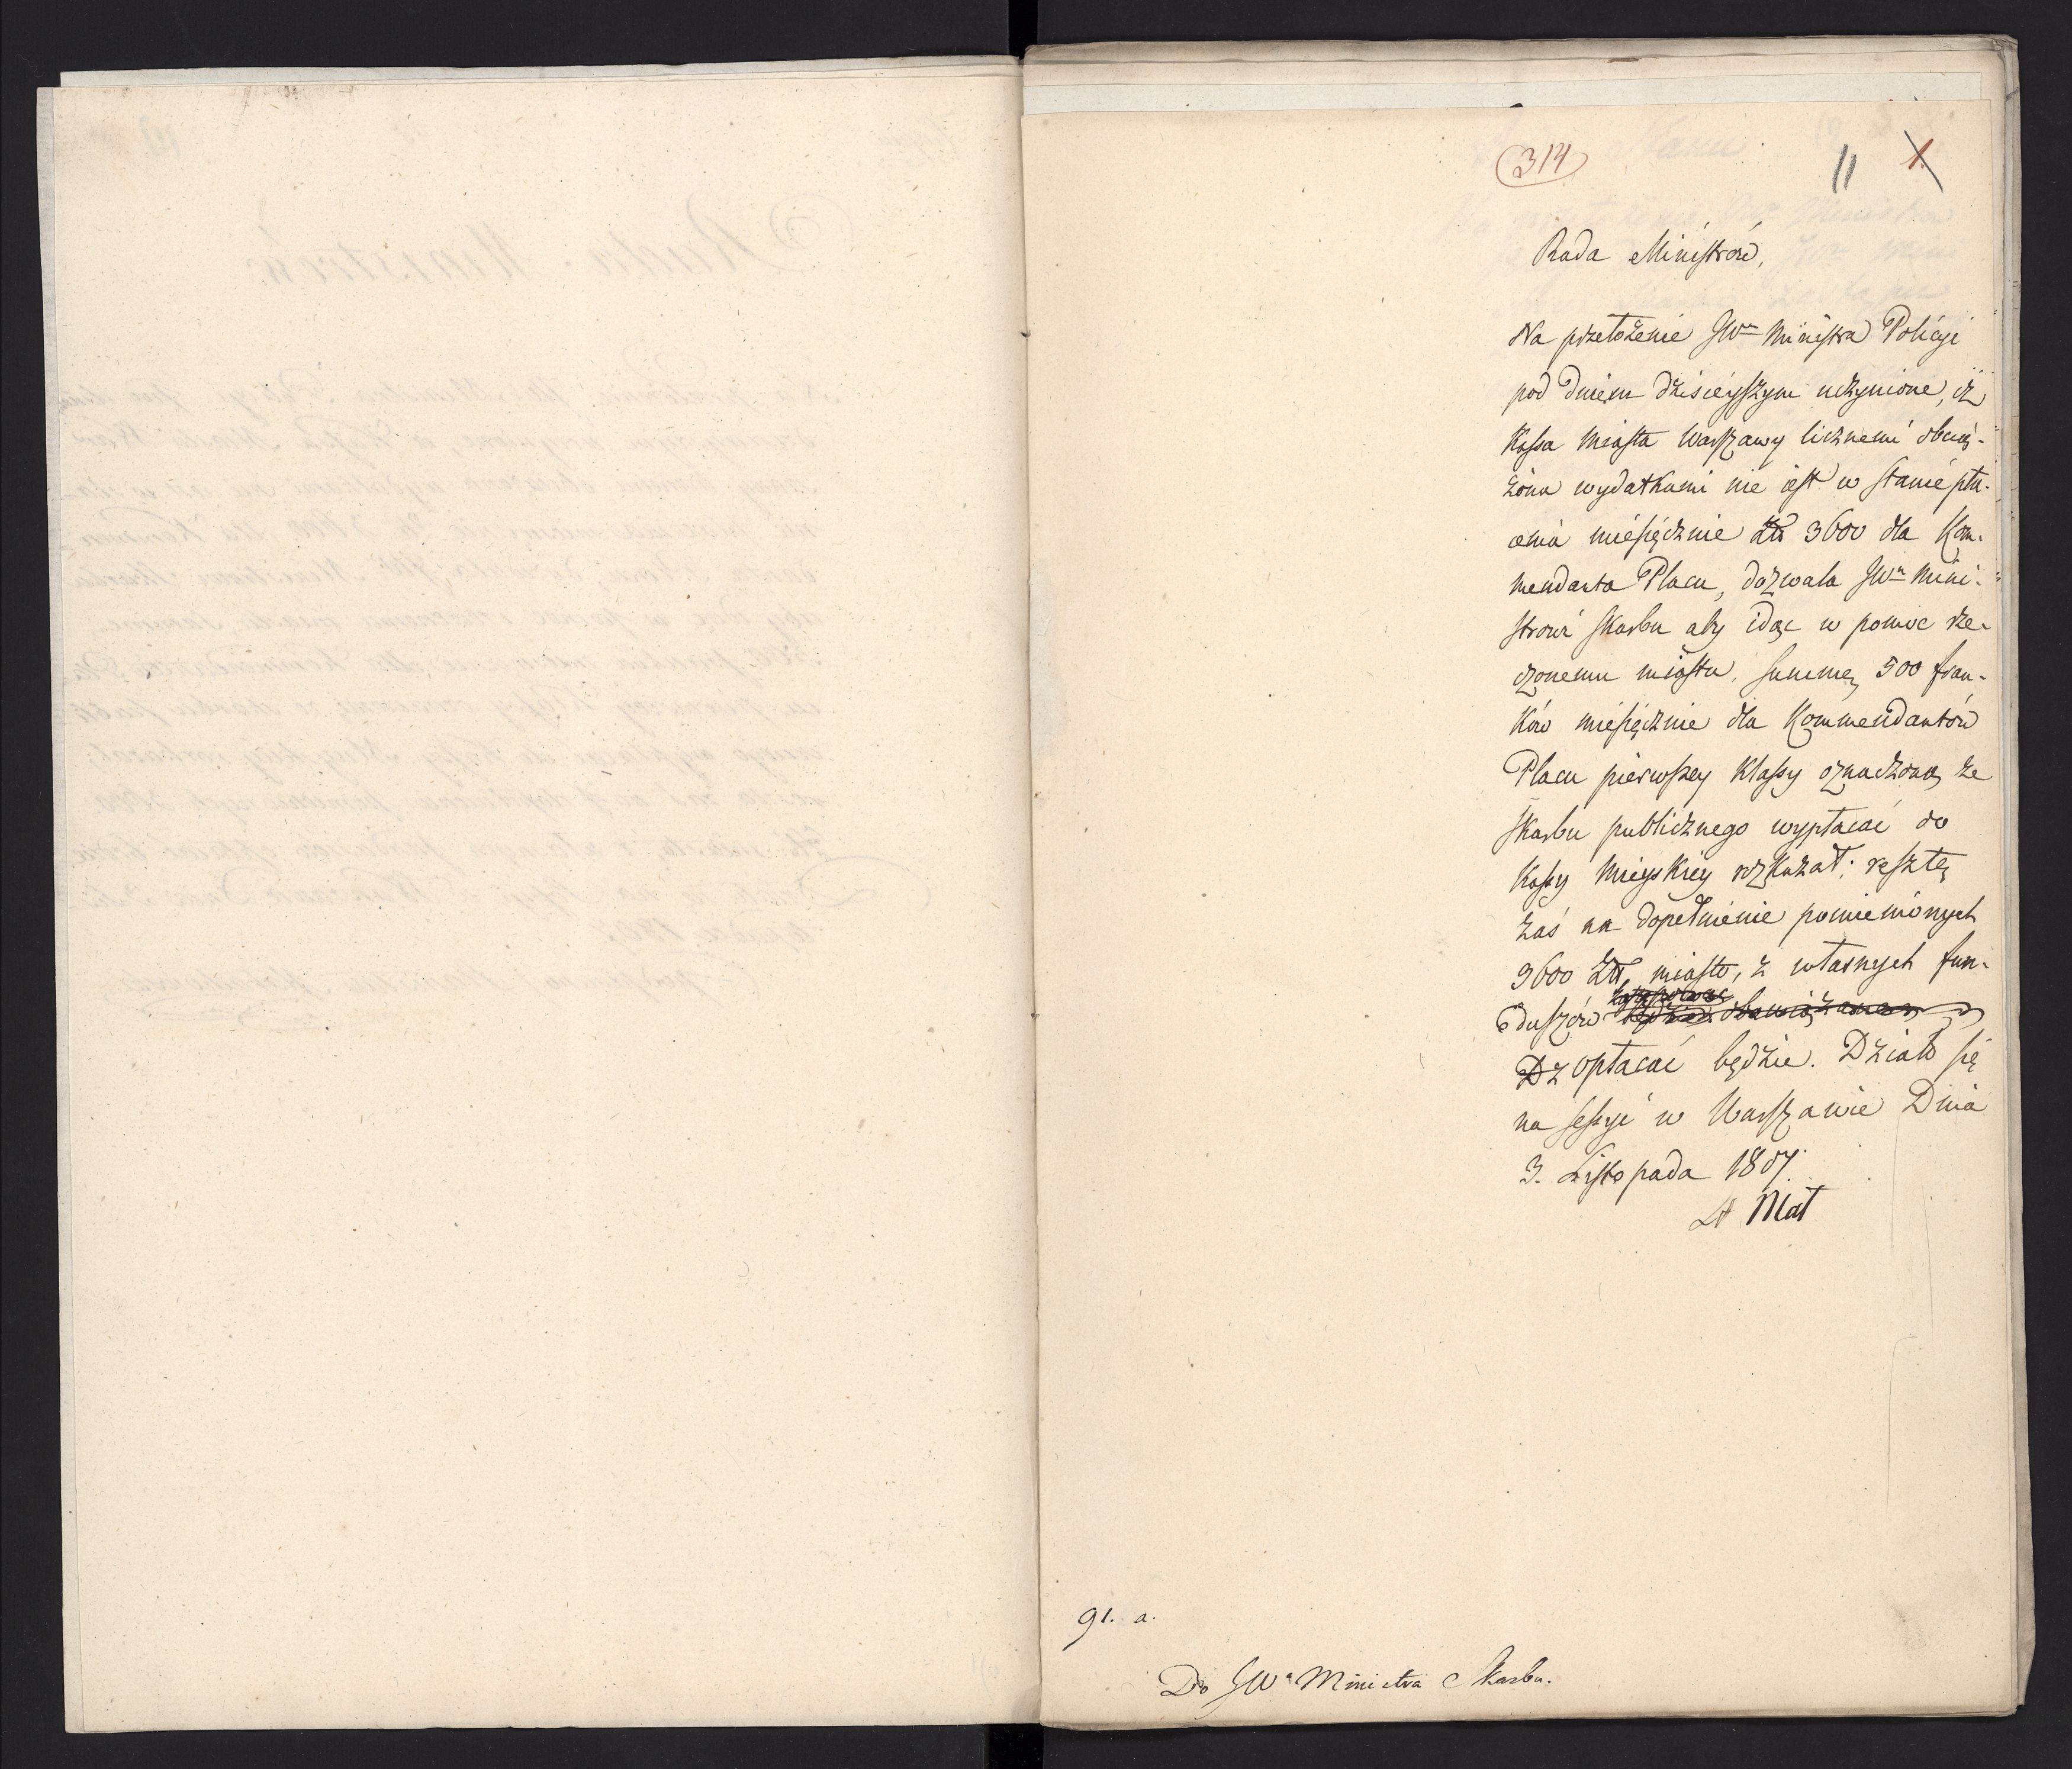 314
11 1
Rada Ministrów,
Na przełożenie JWo Ministra Policyi
pod dniem dzisieyszym uczynione, iż
Kassa Miasta Warszawy licznemi obcią-
żona wydatkami nie iest w stanie pła-
cenia miesięcznie Zł 3600 dla Kom-
mendanta Placu, dozwala JWu Mini-
strowi Skarbu aby idąc w pomoc rze-
czonemu miastu, summę 500 fran-
ków miesięcznie dla Kommendantów
Placu pierwszey Klassy oznaczoną ze
skarbu publicznego wypłacać do
Kassy Mieyskiey rozkazał; resztę
zaś na dopełnienie pomienionych
3600 Zł, miasto, z własnych fun-
duszów
opłacać będzie. Działo się
na sessyi w Warszawie Dnia
3. Listopada 1807.
Mał
91. a.
Do JWo Ministra Skarbu.